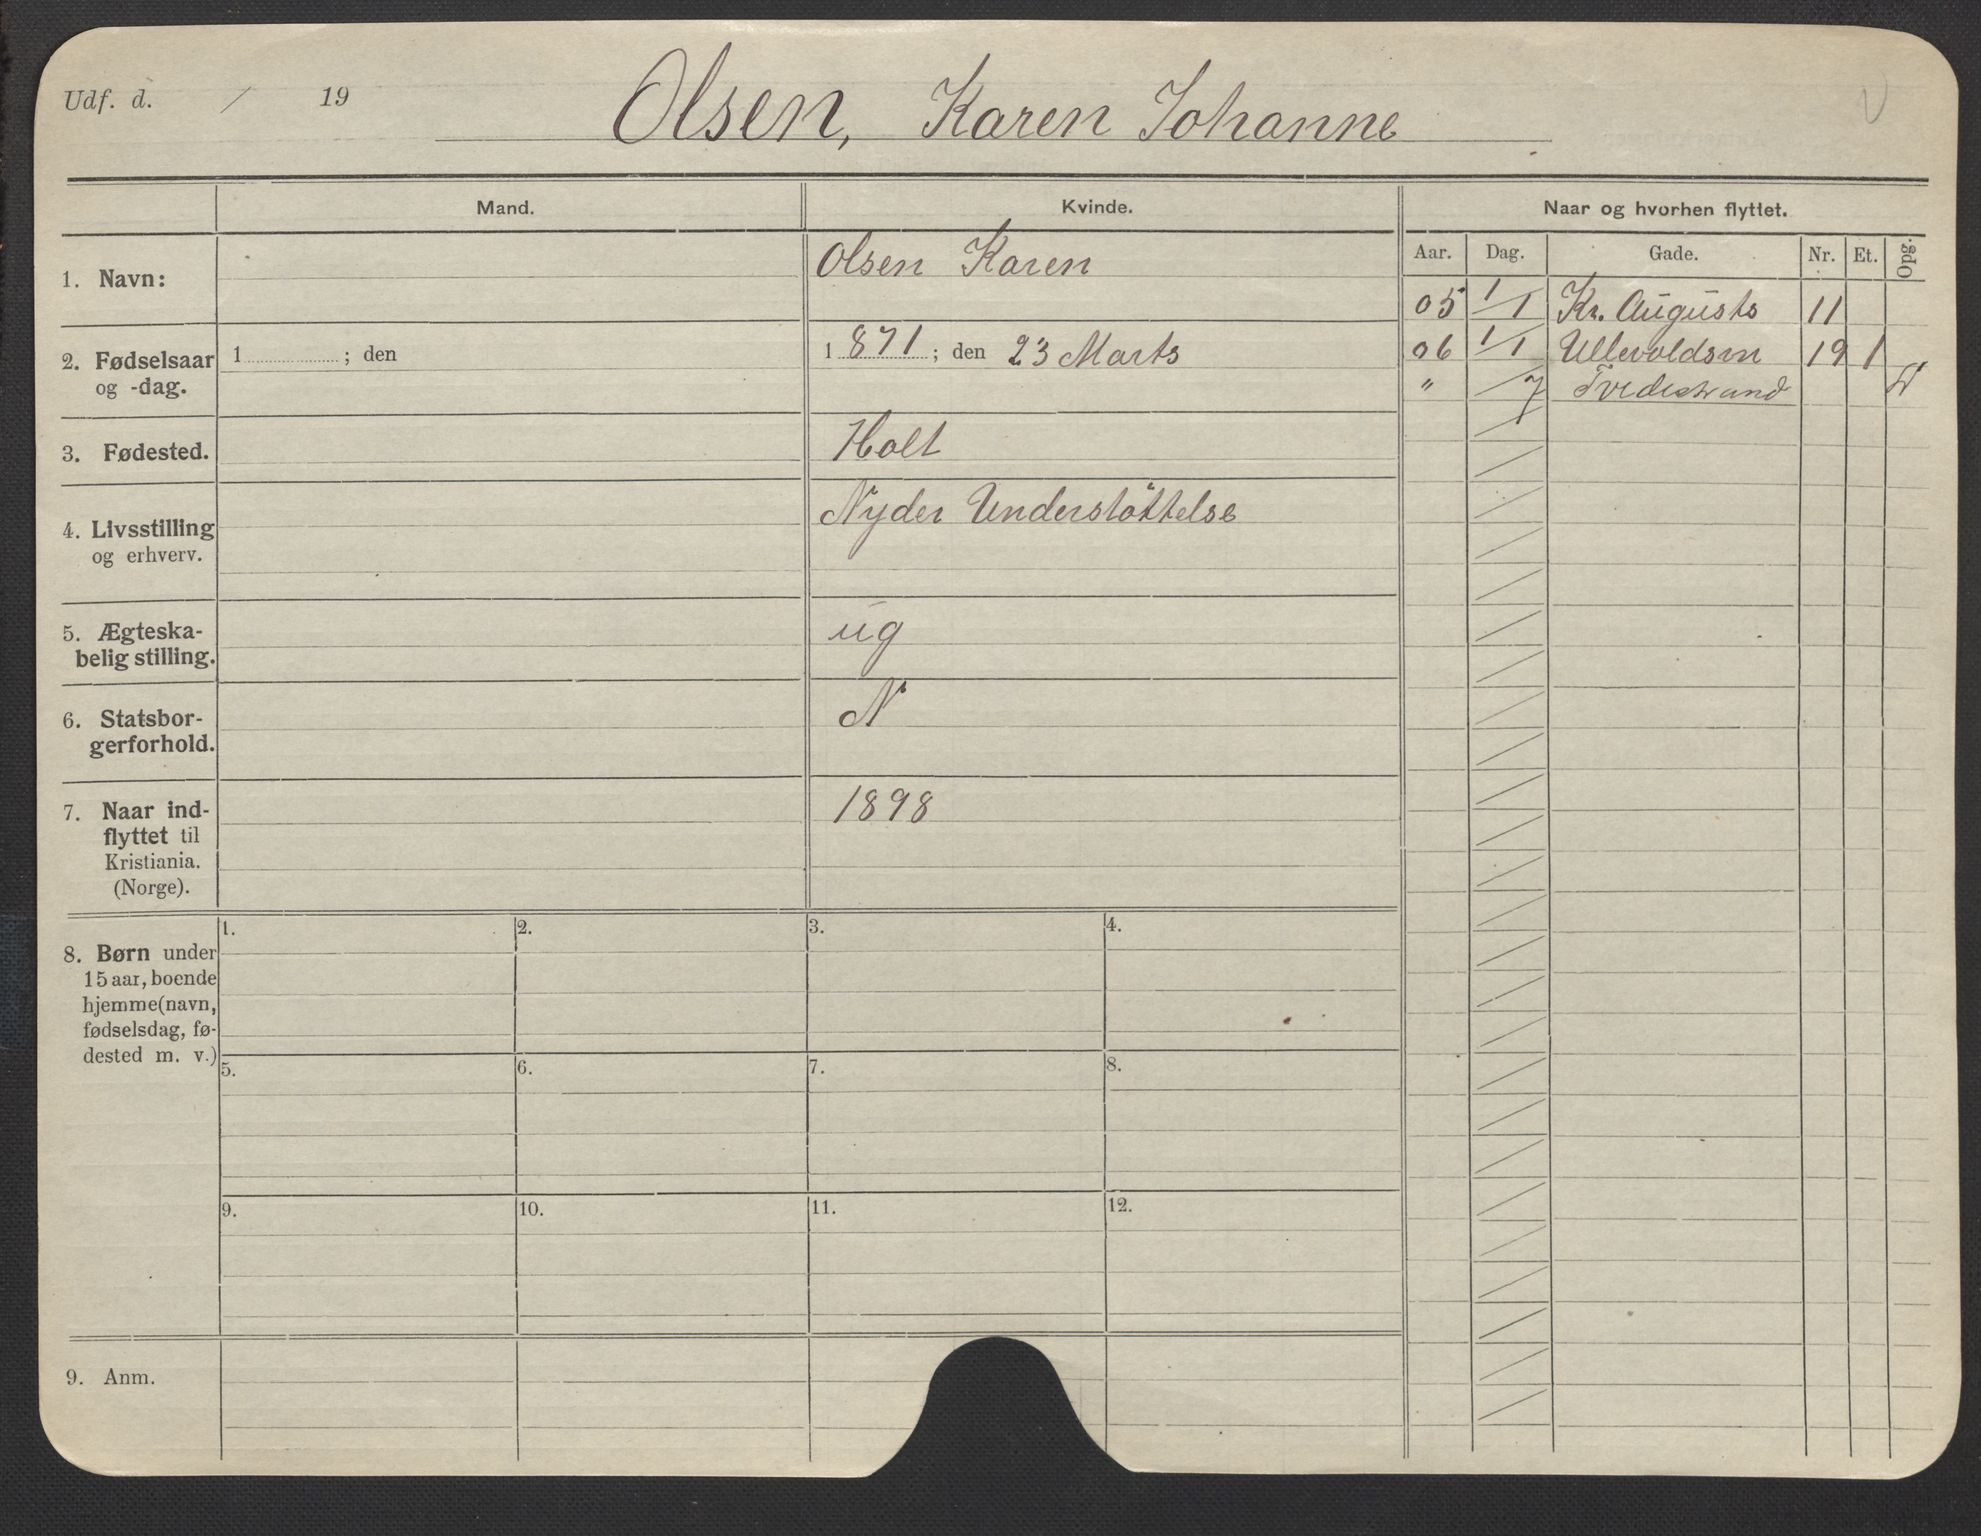 Udf. d. / 19
Olsen, Karen Johanne
Mand.
Kvinde.
Naar og hvorhen flyttet.
Aar. Dag. Gade. Nr. Et. Opg.
1. Navn:
Olsen Karen
2. Fødselsaar
og -dag.
1 ; den
1 871 ; den 23 Marts
3. Fødested.
Holt
4. Livsstilling
og erhverv.
Nyder Understöttelse
5. Ægteska-
belig stilling.
ug
6. Statsbor-
gerforhold.
N
7. Naar ind-
flyttet til
Kristiania.
(Norge).
1898
05 1/1 Kr. Augusts 11
06 1/1 Ullevoldsvn 19 1
" /7 Tvedestrand
8. Børn under
15 aar, boende
hjemme (navn,
fødselsdag, fø-
dested m. v.)
1. 2. 3. 4.
5. 6. 7. 8.
9. 10. 11. 12.
9. Anm.